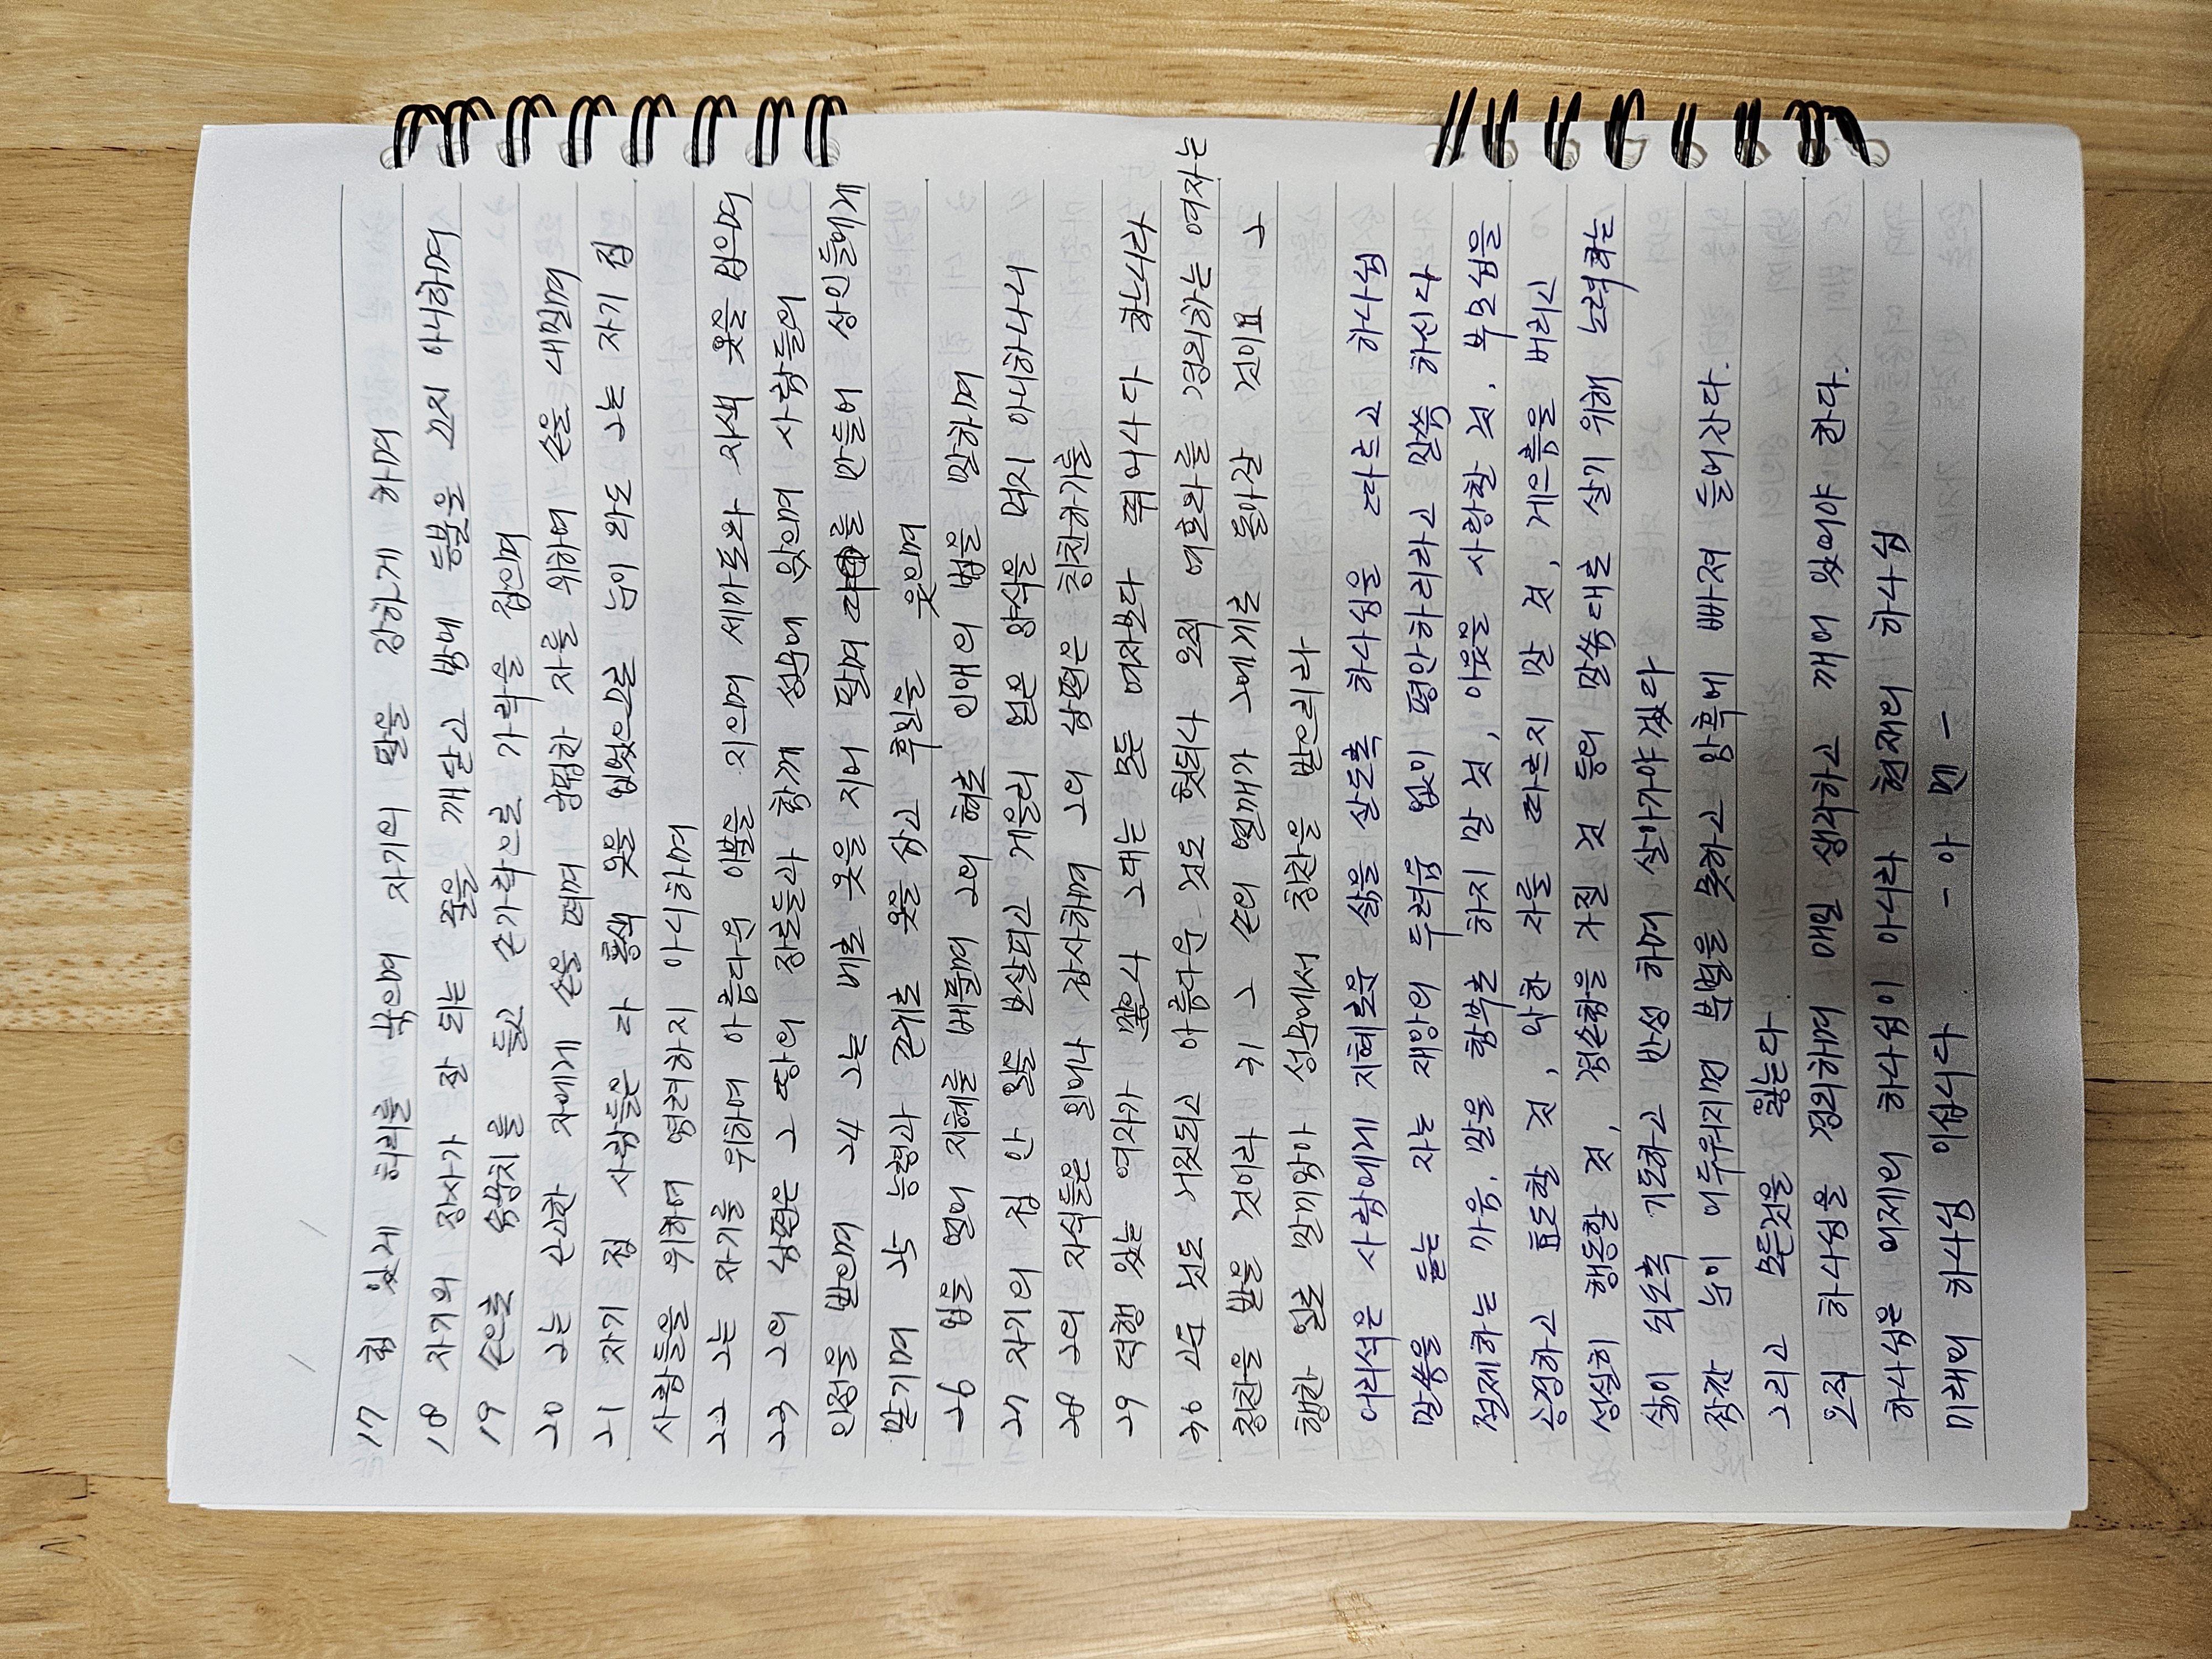 17 힘 있게 허리를 묶으며 자기의 팔을 강하게 하며
18 자기의 장사가 잘 되는 줄을 깨닫고 밤에 등불을 끄지 아니하며
19 손으로 솜뭉치를 들고 손가락으로 가락을 잡으며
20 그는 곤고한 자에게 손을 펴며 궁핍한 자를 위하여 손을 내밀며
21 자기 집 사람들은 다 홍색 옷을 입었으므로 눈이 와도 그는 자기 집
사람들을 위하여 염려하지 아니하며
22 그는 자기를 위하여 아름다운 이불을 지으며 세마포와 자색 옷을 입으며
23 그의 남편은 그 땅의 장로들과 함께 성문에 앉으며 사람들의
인정을 받으며 24 그는 베로 옷을 지어 팔며 띠를 만들어 상인들에게
맡기며 25 능력과 존귀로 옷을 삼고 후일을 웃으며
26 입을 열어 지혜를 베풀며 그의 혀로 인애의 법을 말하며
27 자기의 집 안 일을 보살피고 게을리 얻은 양식을 먹지 아니하나니
28 그의 자식들은 일어나 감사하며 그의 남편은 칭찬하기를
29 덕행 있는 여자가 많으나 그대는 모든 여자보다 뛰어나다 하느니라
30 고운 것도 거짓되고 아름다운 것도 헛되나 오직 여호와를 경외하는 여자는
칭찬을 받을 것이라 31 그 손의 열매가 그에게로 돌아갈 것이요 그
행한 일로 말미암아 성문에서 칭찬을 받으리라
어리석은 사람에게 지혜로운 삶을 살도록 하나님을 따르고 하나님
말씀을 듣는 자는 재앙의 두려움 없이 평안하리라고 말씀 하신다
절제하는 마음, 말을 함부로 하지 말 것, 이웃을 사랑할 것, 부모님을
공경하고 효도할 것, 악한 자를 따르지 말 것, 게으름을 버리고
성실히 행동할 것, 겸손함을 가질 것 등의 말씀대로 살기 위해 노력하는
삶이 되도록 기도하고 반성 하며 살아가야겠다
작간 눈이 어두워지면 분별을 못하고 암흑에 빠져 들어간다.
그리고 모든것을 잃는다
오직 하나님을 경외하며 매일 생각하고 깨어 있어야 한다.
하나님은 어제의 하나님이 아니라 현재의 하나님
미래의 하나님 이십니다 - 아 멘 -